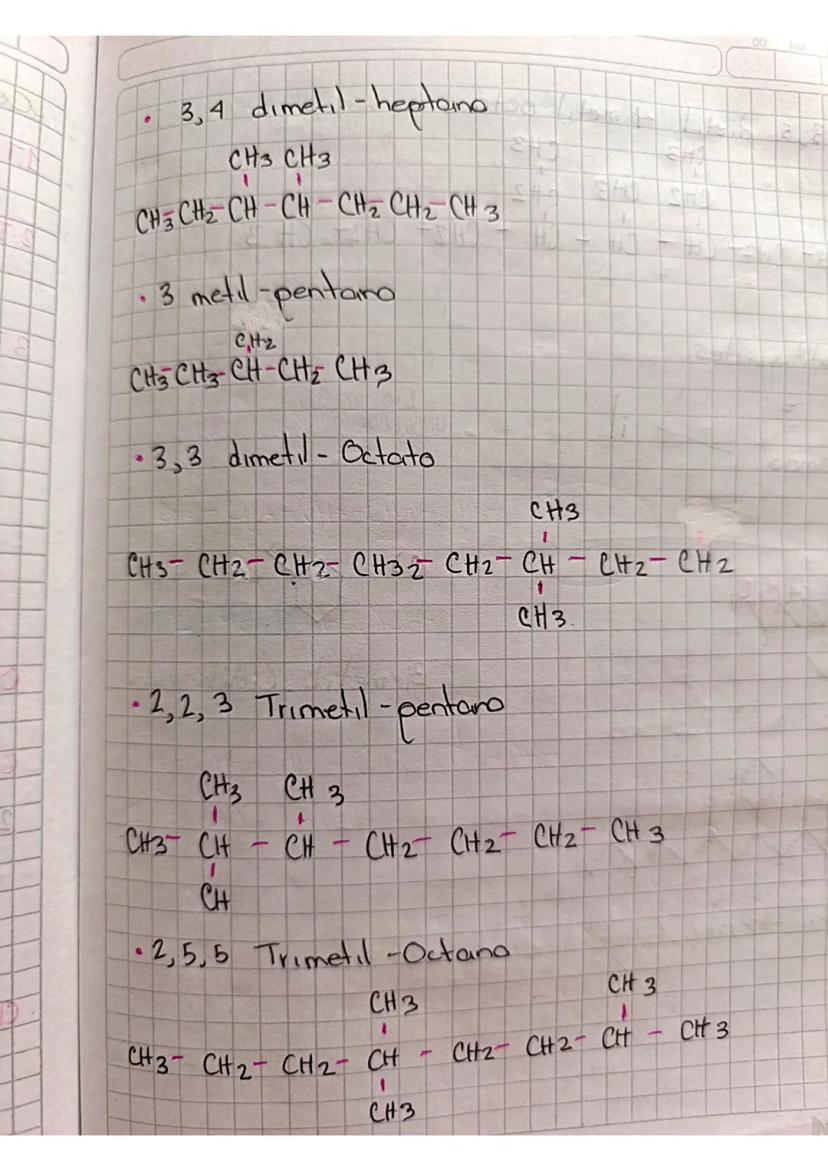 • 3,4 dimetil-heptano
CH3 CH3
CH3-CH2-CH-CH-CH2-CH2-CH3
• 3 metil-pentano
CH2
CH3-CH3-CH-CH2-CH3
• 3,3 dimetil-Octato
CH3
CH3-CH2-CH2-CH32-CH2-CH-CH2-CH2
CH3
• 2,2,3 Trimetil-pentano
CH3 CH3
CH3-CH-CH-CH2-CH2-CH2-CH3
CH
• 2,5,5 Trimetil-Octano
CH3 CH3
CH3-CH2-CH2-CH-CH2-CH2-CH-CH3
CH3